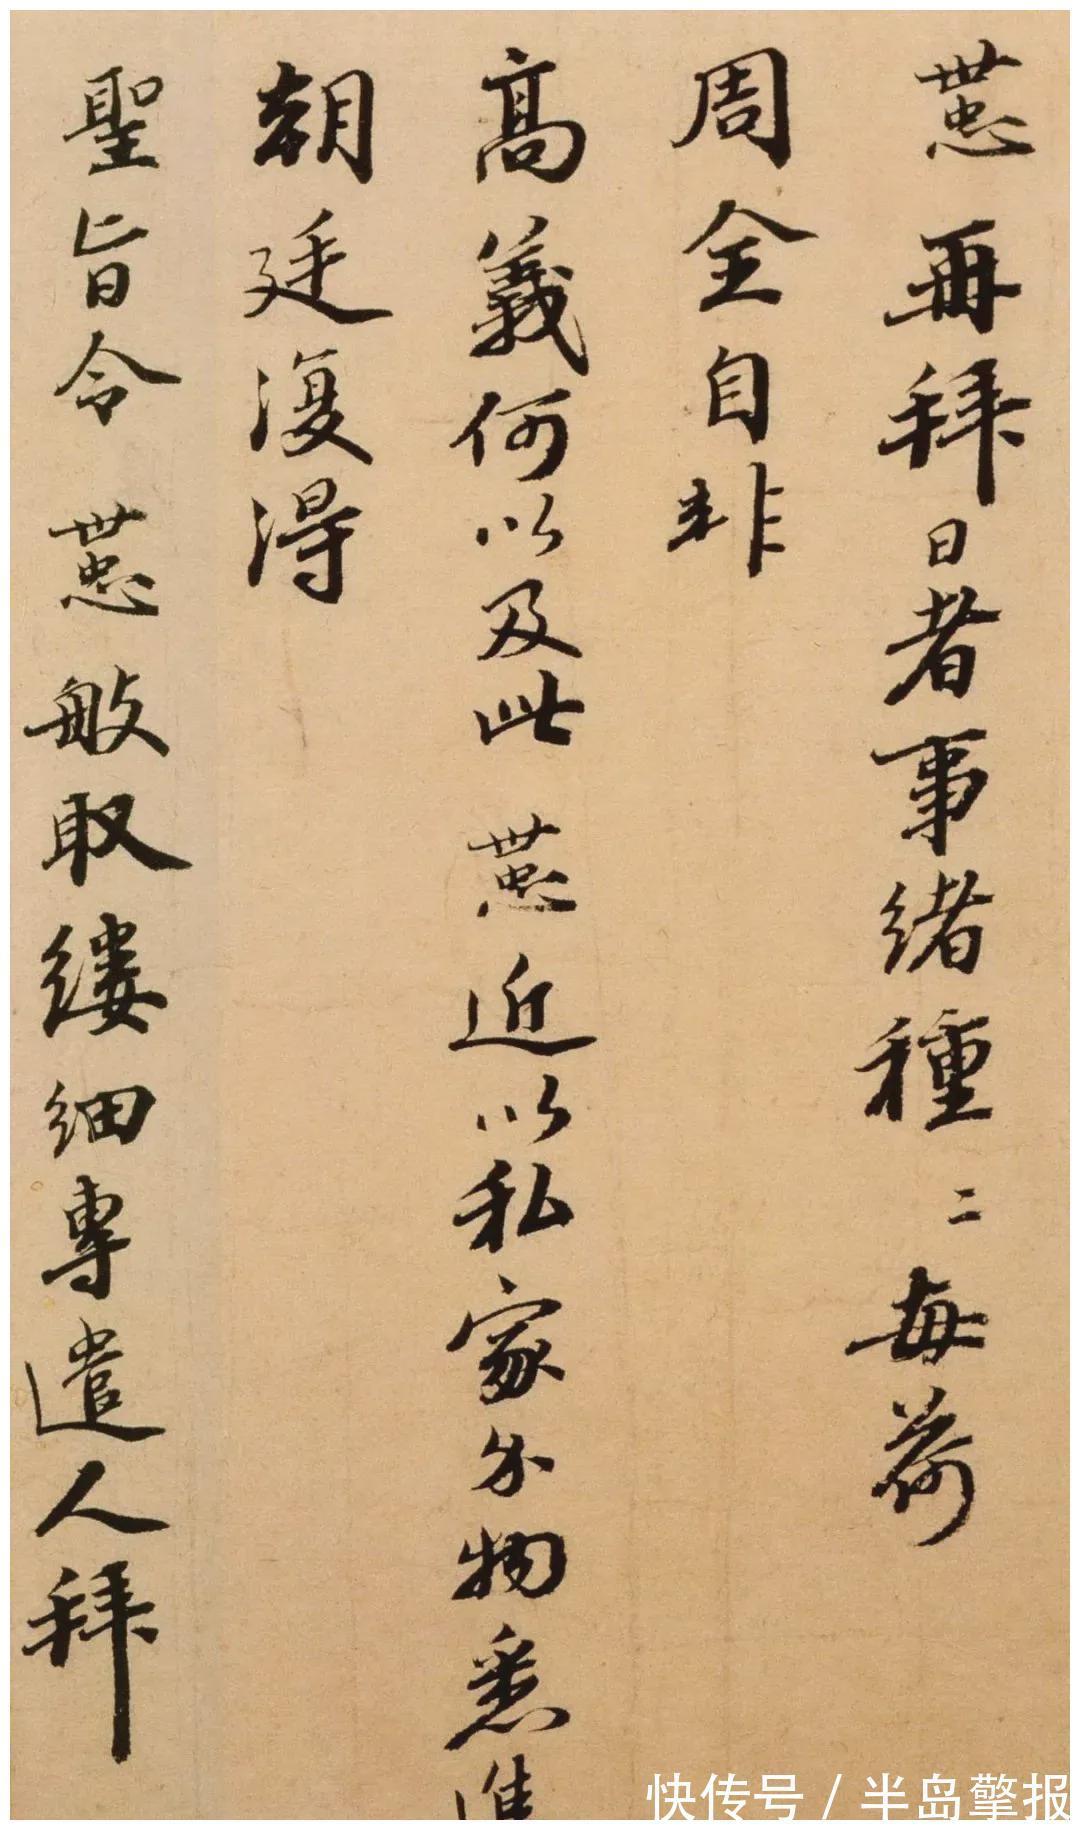 世忠再拜日者事緒種〻每荷
周全自非
高義何以及此世忠近以私家分物悉
朝廷復得
聖旨令世忠般取縷細專遣人拜
快传号 / 半岛擎报